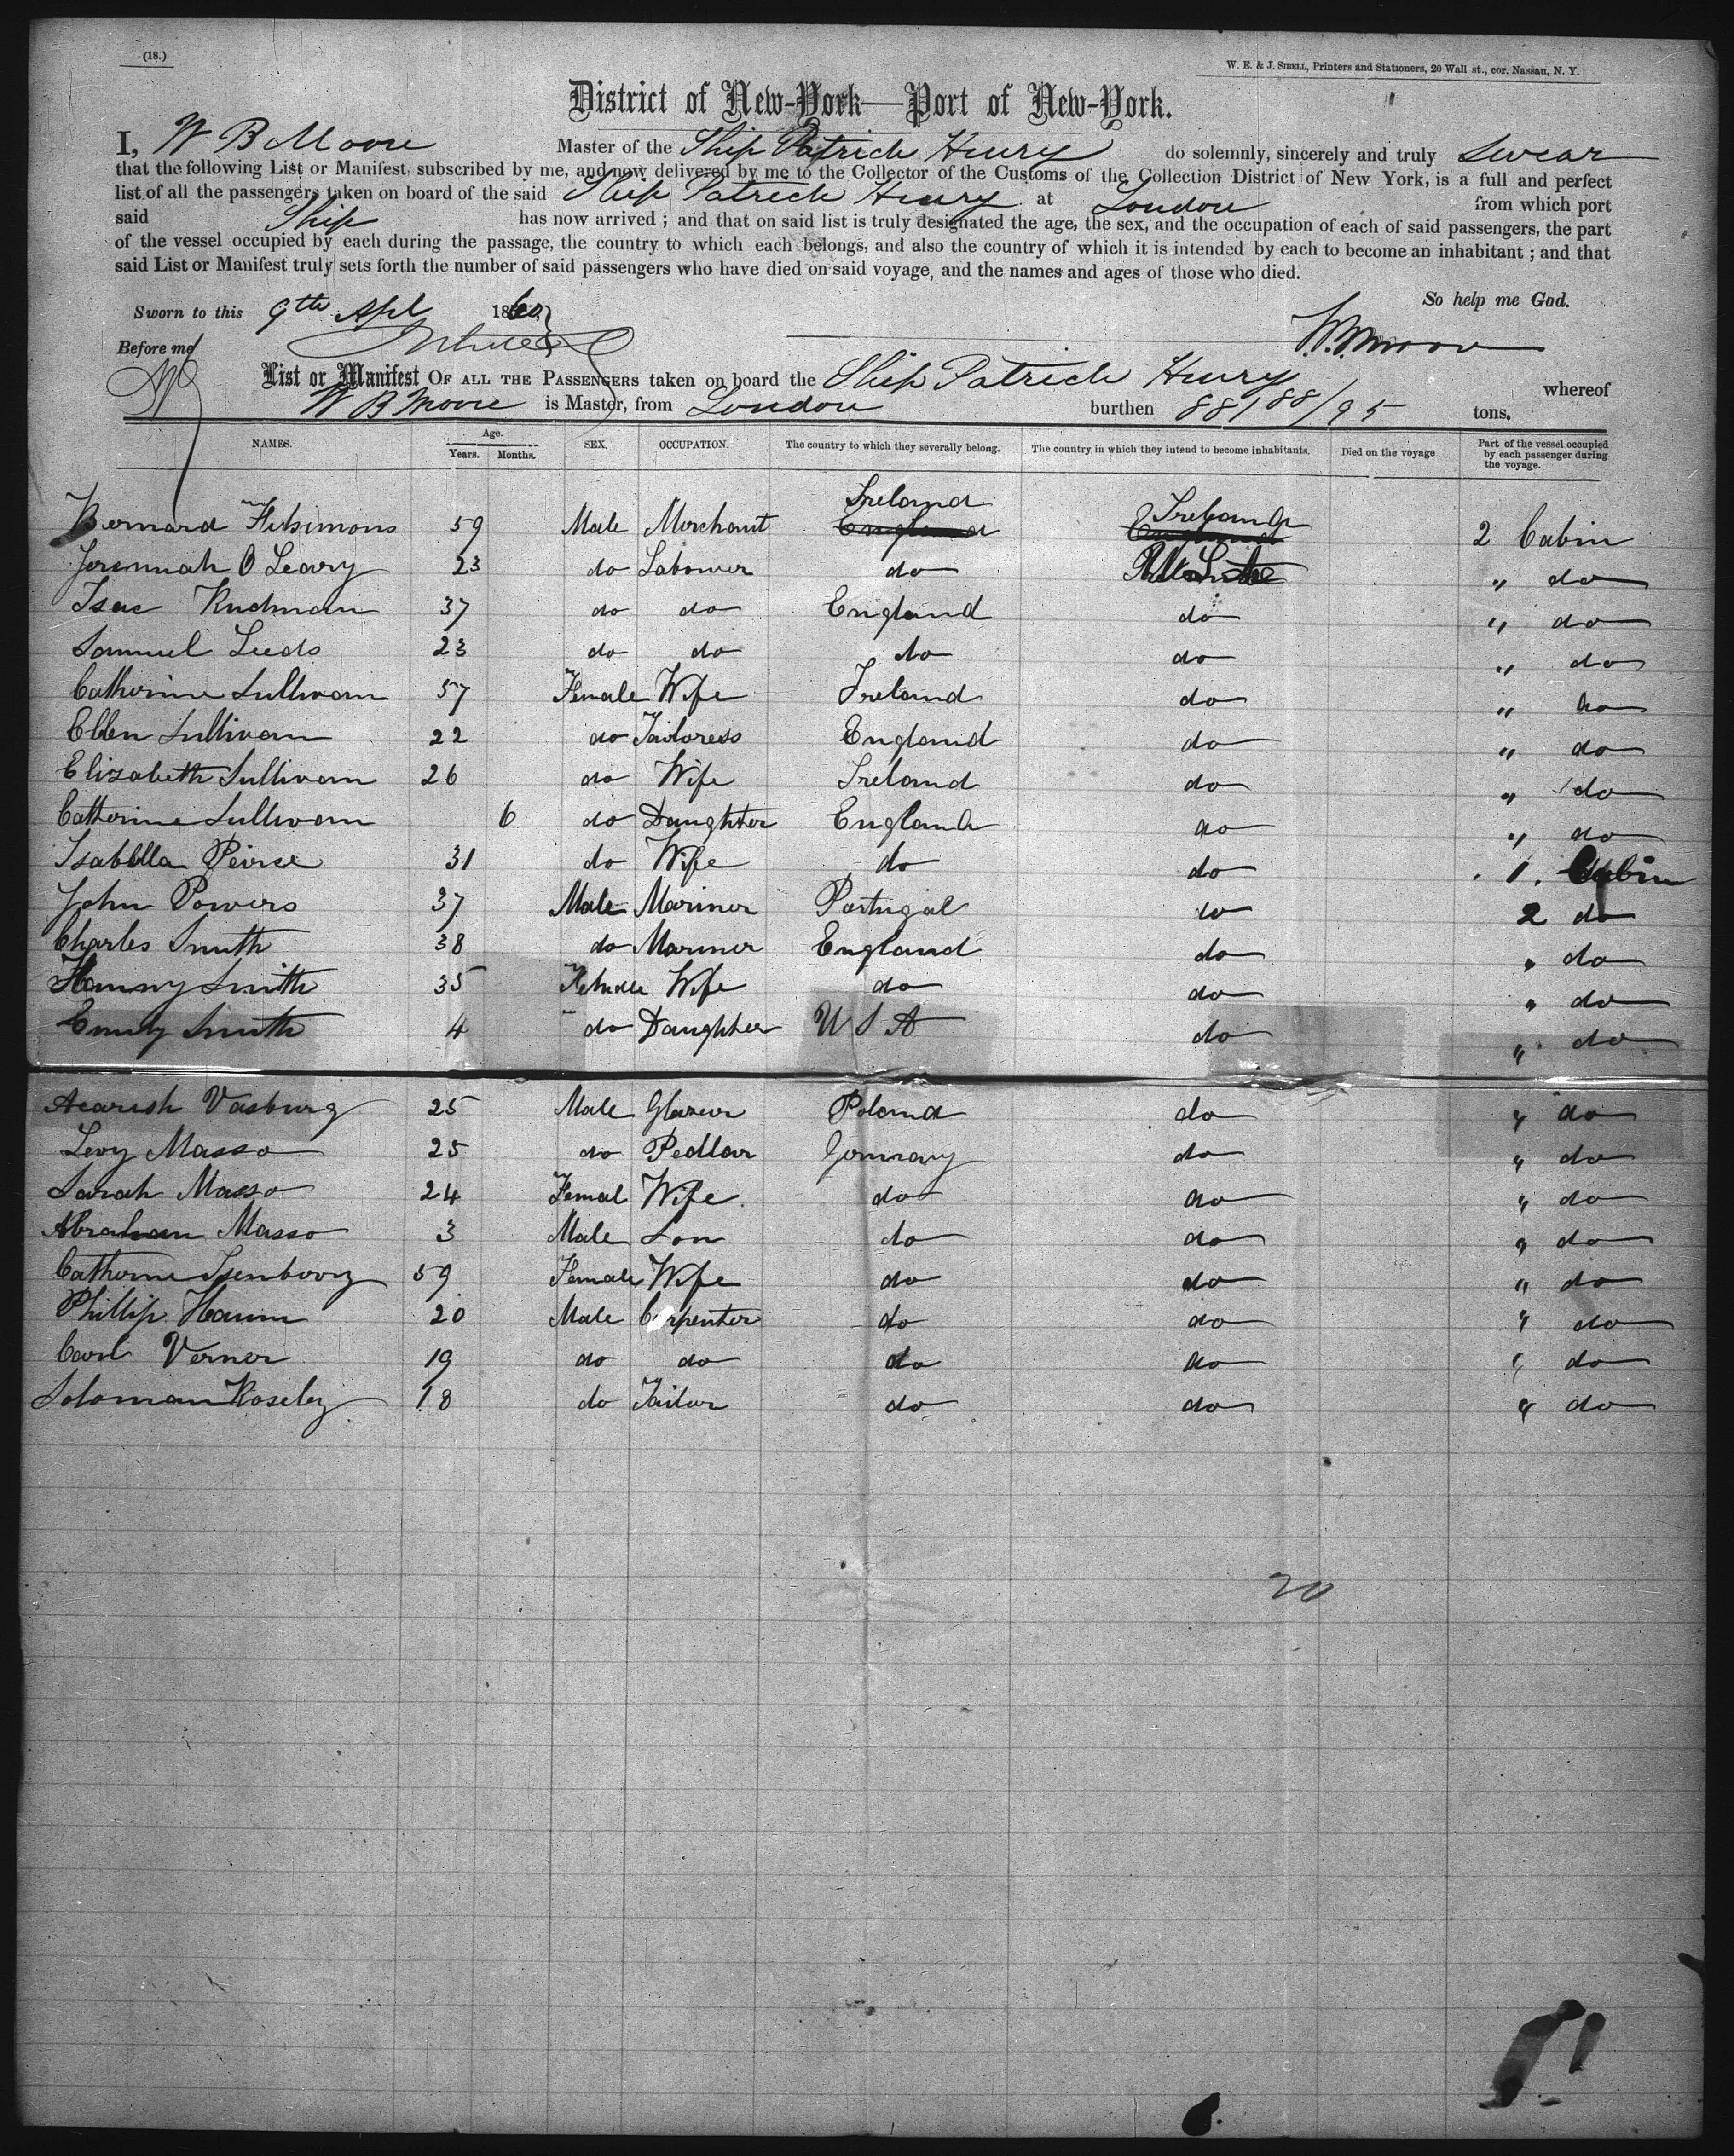 (18.)
W. E. & J. SIBELL, Printers and Stationers, 20 Wall st., cor. Nassau, N. Y.
District of New-York—Port of New-York.
I, W B Moore Master of the Ship Patrick Henry do solemnly, sincerely and truly swear
that the following List or Manifest, subscribed by me, and now delivered by me to the Collector of the Customs of the Collection District of New York, is a full and perfect
list of all the passengers taken on board of the said Ship Patrick Henry at London from which port
said Ship has now arrived; and that on said list is truly designated the age, the sex, and the occupation of each of said passengers, the part
of the vessel occupied by each during the passage, the country to which each belongs, and also the country of which it is intended by each to become an inhabitant; and that
said List or Manifest truly sets forth the number of said passengers who have died on said voyage, and the names and ages of those who died.
So help me God.
Sworn to this 9th Apl 1860
W.B. Moore
Before me
List or Manifest OF ALL THE PASSENGERS taken on board the Ship Patrick Henry whereof
W B Moore is Master, from London burthen 881 88/95 tons.
NAMES. Age. Years. Months. SEX. OCCUPATION. The country to which they severally belong. The country in which they intend to become inhabitants. Died on the voyage Part of the vessel occupied by each passenger during the voyage.
Ireland
Bernard Fitsimons 59 Male Merchant England Ireland England 2 Cabin
Jeremiah O Leary 23 do Labourer do " do
Isac Rudman 37 do do England do " do
Samuel Leeds 23 do do do do " do
Catherine Sullivan 57 Female Wife Ireland do " do
Ellen Sullivan 22 do Tailoress England do " do
Elizabeth Sullivan 26 do Wife Ireland do " do
Catherine Sullivan 6 do Daughter England do " do
Isabella Peirce 31 do Wife do do 1. Cabin
John Powers 37 Male Mariner Portugal do 2 do
Charles Smith 38 do Mariner England do " do
Smith 35 Female Wife do do " do
Emily Smith 4 do Daughter U S A do " do
Vasburg 25 Male Glazier Poland do " do
Levy Masso 25 do Pedlar Germany do " do
Sarah Masso 24 Femal Wife do do " do
Abraham Masso 3 Male Son do do " do
Catherine Isenbourg 59 Female Wife do do " do
Phillip Hamm 20 Male Carpenter do do " do
Carl Verner 19 do do do do " do
Soloman Roseby 18 do Tailor do do " do
20